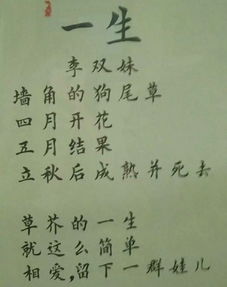 一生
李双妹
墙角的狗尾草
四月开花
五月结果
立秋后成熟并死去
草芥的一生
就这么简单
相爱,留下一群娃儿